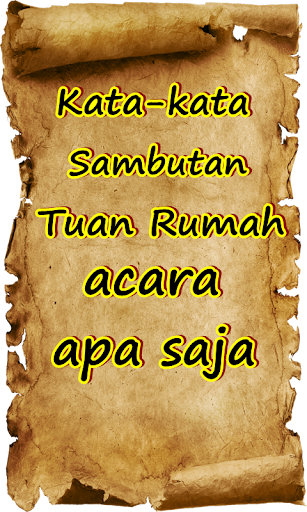 Kata-kata
Sambutan
Tuan Rumah
acara
apa saja